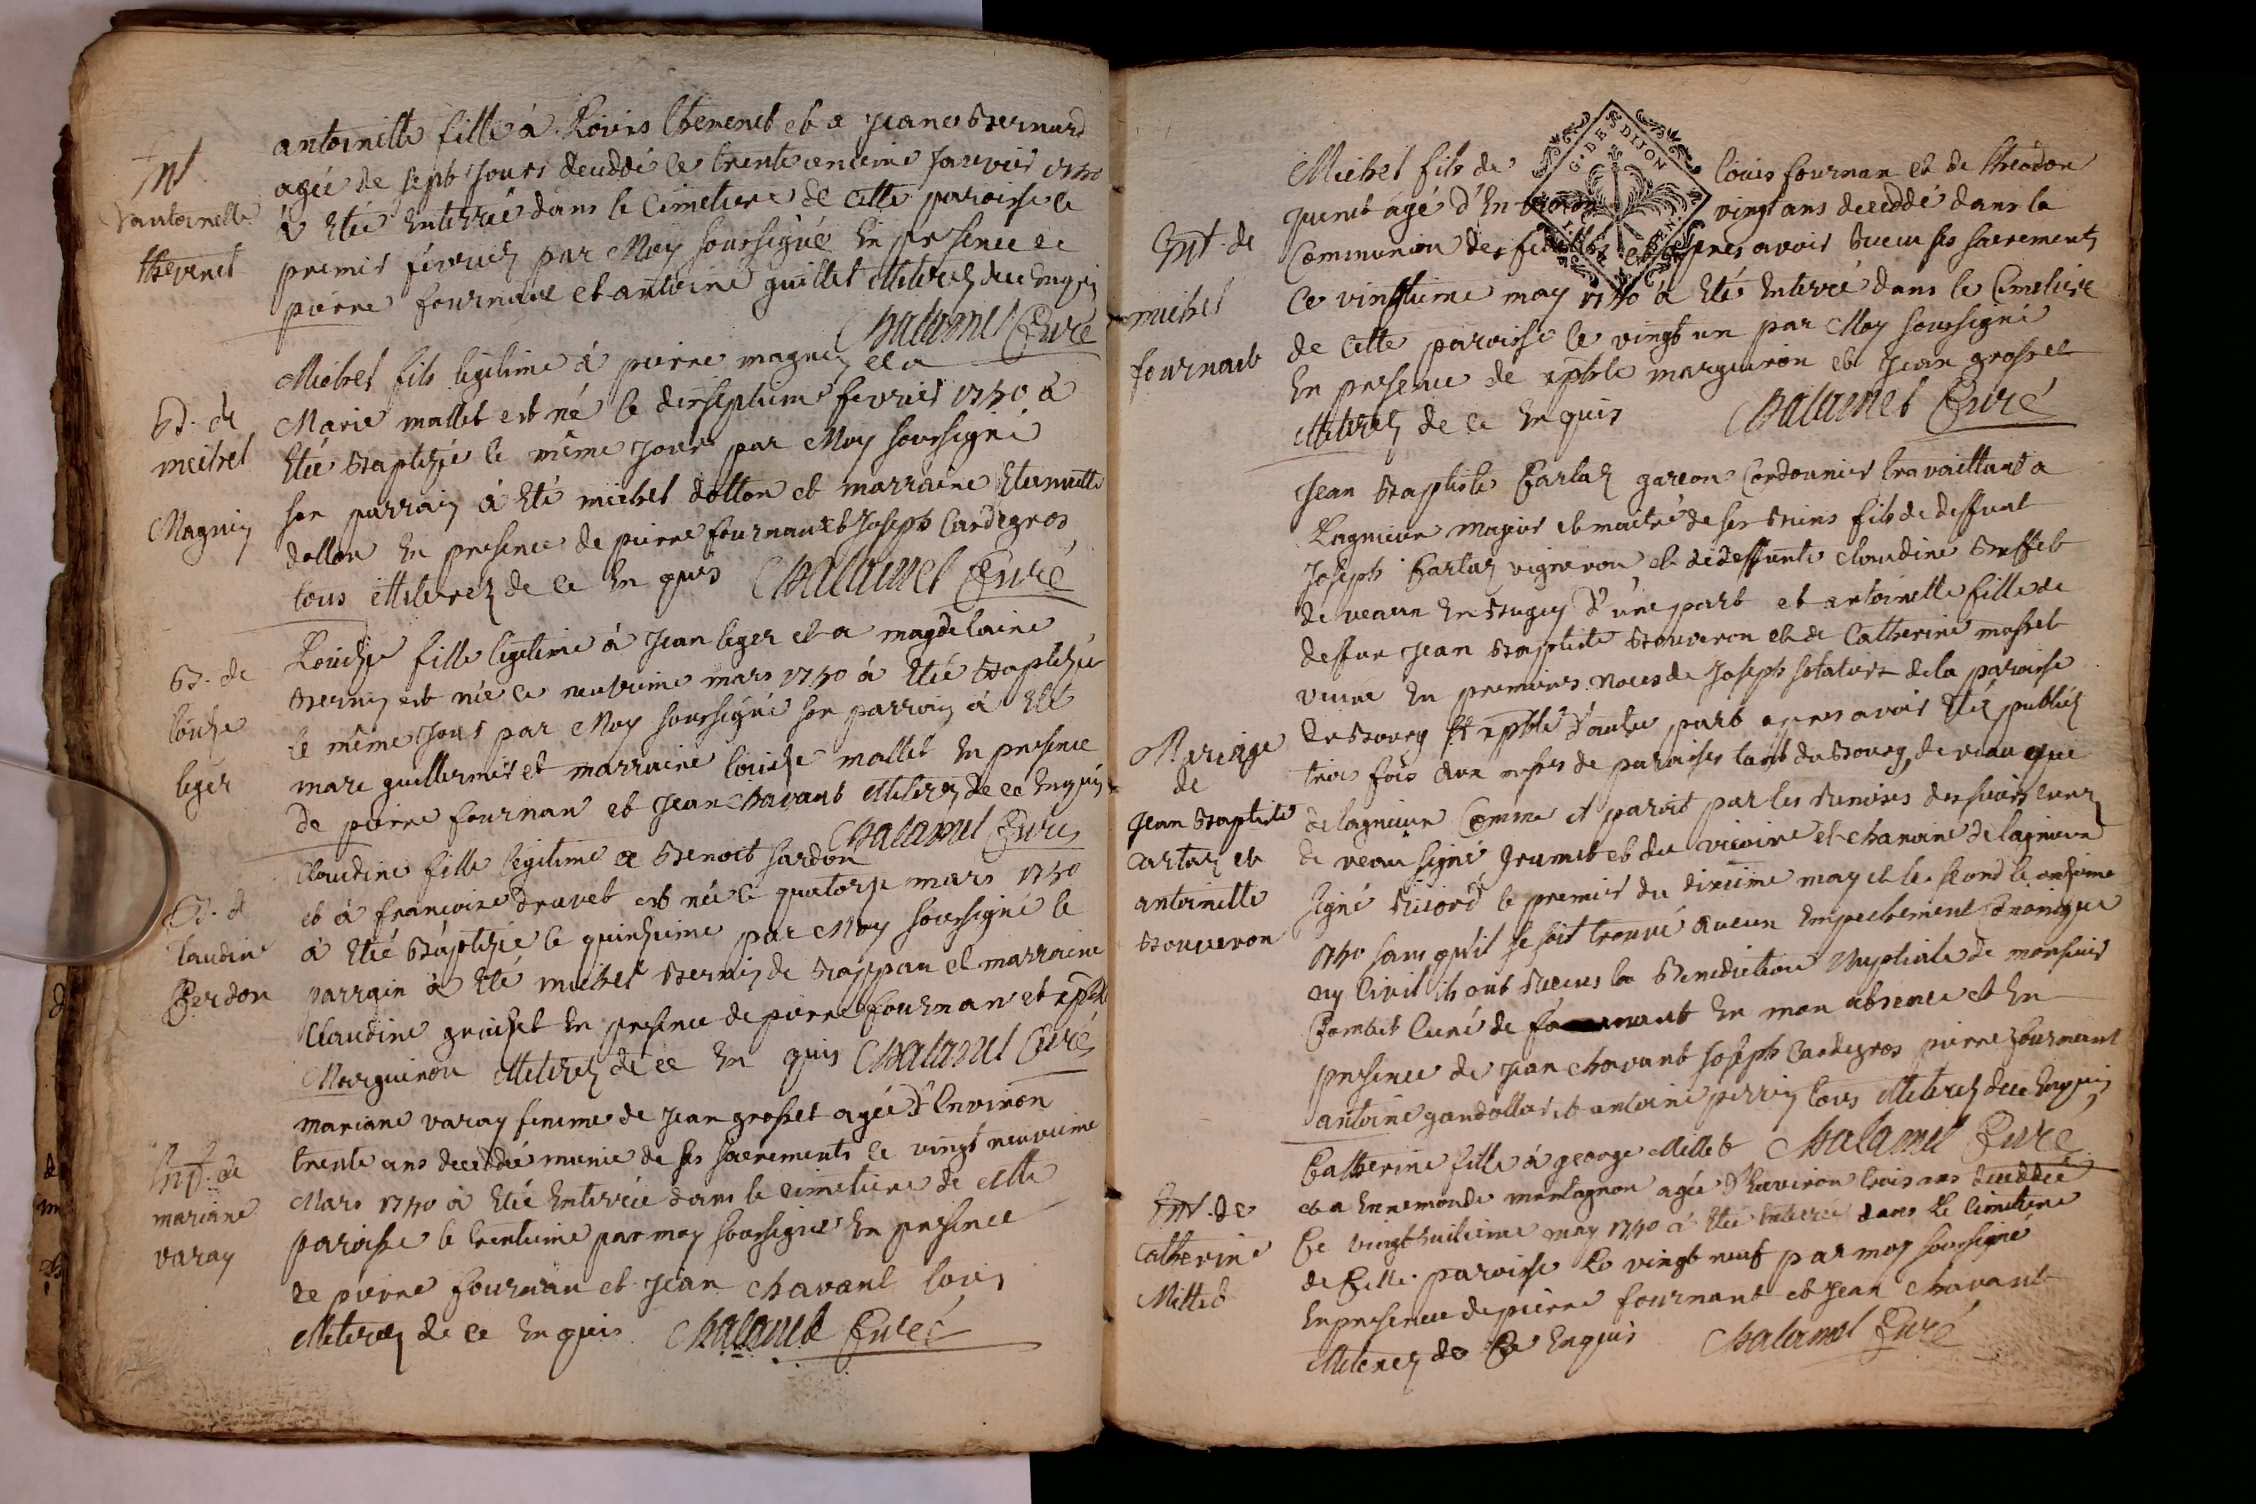 Ent
d'antoinette
thevenet
antoinette fille à Louis thevenet et a Jeane Bernard
agée de sept Jours deceddé le trente unieme Janvier 1750
à Eté Enterrée dans le Cimetiere de cette paroisse le
premier février par Moy soussigné En presence de
pierre fournant et antoine guillet illiterez de ce Enquis
Chalamel Curé
B. de
michel
Magnin
Michel fils legitime à pierre magnin et a
Marie mallet est né le dixseptieme fevrier 1750 à
Eté Baptizé le même Jour par Moy soussigné
son parrain à Eté michel dollon et marraine
dollon En presence de pierre fournant et Joseph Cardegros
tous illiterez de ce En quis Chalamel Curé
B. de
louize
leger
Louize fille legitime à Jean leger et a magdelaine
Bernin est née le neuvieme mars 1750 à Eté Baptizée
le même Jour par Moy soussigné son parrain à Eté
marc guillermet et marraine louize mallet En presence
de pierre fournan et Jean Chavant illiterez de ce Enquis
Chalamel Curé
B. d
laudine
Serdon
Claudine fille legitime a Benoit sardon
et à francoise Druvet est née le quatorze mars 1750
à Eté Baptizée le quinzieme par Moy soussigné le
parrain à Eté michel Bernin de Sappan et marraine
Claudine graizet En presence de pierre fournan et xphle
Marguiron illiterez de ce En quis Chalamel Curé
Ent. de
mariane
varay
mariane varay femme de Jean grosset agée d'Environ
trente ans deceddée munie de ses sacrements le vingt neuvieme
Mars 1750 à Eté Enterrée dans le cimetiere de cette
paroisse le trentieme par moy soussigné En presence
de pierre fournan et Jean Chavant tous
illiterez de ce En quis Chalamel Curé
G. DE DIJON
Ent. de
michel
fournant
Michel fils de louis fournan et de theodon
quenet agé d'En viron vingt ans deceddé dans la
Communion des fidelles et apres avoir Recu ses sacrements
le vingtieme may 1750 à Eté Enterré dans le Cimetiere
de cette paroisse le vingt un par Moy soussigné
En presence de xphle marguiron et Jean grosset
illiterez de ce Enquis Chalamel Curé
Mariage
de
Jean Baptiste
Cartaz et
antoinette
Bouveron
Jean Baptiste Cartaz garcon Cordonnier travaillant a
Lagnieu majeur et maitre de ses Droits fils de deffunt
Joseph Cartaz vigneron et de deffunte claudine Buffet
de veaux En Bugey d'une part et antoinette fille de
deffun Jean Baptiste Bouveron et de Catherine mosset
veuve En premieres Noces de Joseph de la paroisse
de Bourg St xphle d'autre part apres avoir Eté publiez
trois fois aux messes de paroisses tant du Bourg, de veau que
de lagnieu Comme il paroit par les Remises des sieurs Curez
de veau signé grumet et du vicaire et chanoine de lagnieu
signé Ricord le premier du dixieme may et le second le onzieme
1750 sans qu'il se soit trouvé aucun Empechement Canonique
ny Civil ils ont Recus la Benediction Nuptiale de monsieur
Combet Curé de En mon absence et En
presence de Jean Chavant Joseph Cardegros pierre fournant
antoine gandollar et antoine perrin tous illiterez de ce Enquis
Chalamel Curé
Ent. de
Catherine
Millet
Catherine fille à george Millet
et a Ennemonde montagnon agée d'Environ trois ans deceddée
le vingt huitieme may 1750 à Eté Enterrée dans le Cimetiere
de Cette paroisse le vingt neuf par moy soussigné
En presence de pierre fournant et Jean Chavant
illiterez de Ce Enquis Chalamel Curé